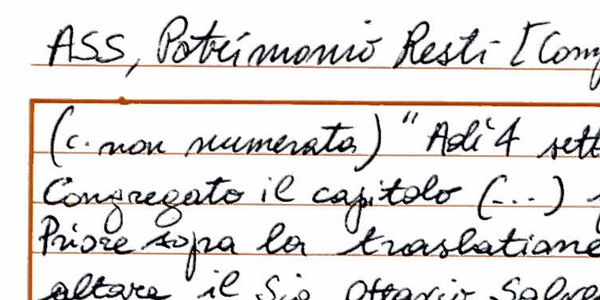 ASS, Patrimonio Resti [Cong
(c. non numerata) "Adi 4 sett
Congregato il capitolo (...)
Priore sopra la traslatione
altare il Sig Ottavio Salve